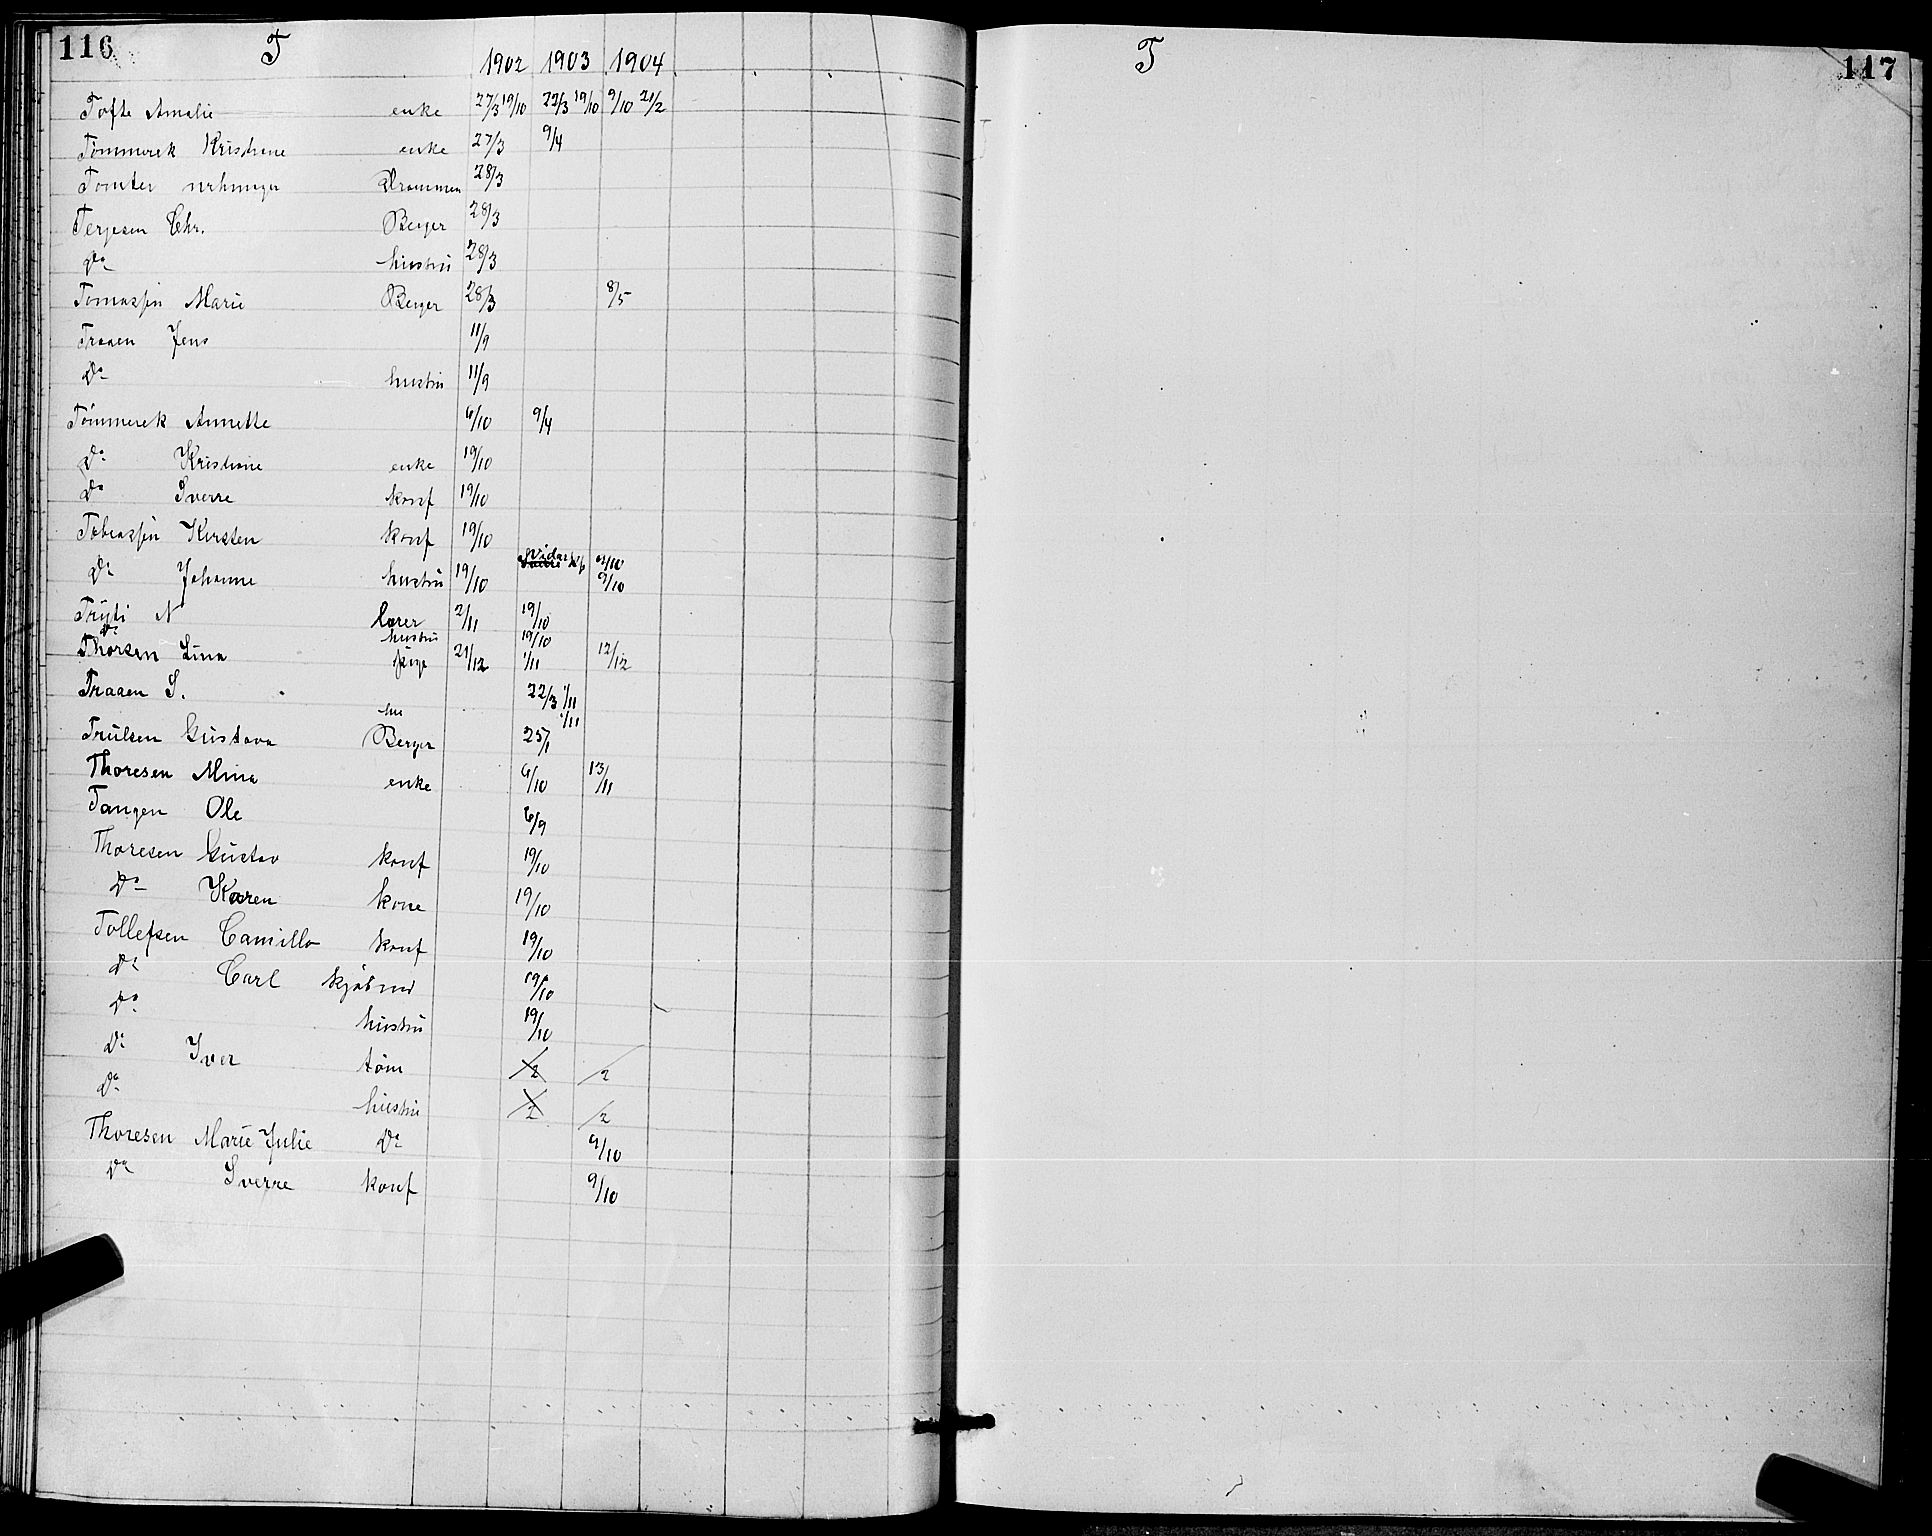 116 T
1902 1903 1904
Tofte Amalie enke 27/3 19/10 22/3 19/10 9/10 21/2
Tømmerek Kristine enke 27/3 9/4
Tomter Drammen 28/3
Terjesen Chr. Berger 28/3
Do hustru 28/3
Tomassen Marie Berger 28/3 8/5
Traaen Jens 11/9
Do hustru 11/9
Tømmerek Annette 6/10 9/4
Do Kristine enke 19/10
Do Sverre konf 19/10
Tobiassen Kirsten konf 19/10
Do Johanne hustru 19/10 9/10
N Lærer 2/11 19/10
Do hustru 19/10
Thorsen Lina pige 21/12 1/11 12/12
Traaen S. 22/3 1/11
hu 1/11
Trulsen Gustava Berger 25/1
Thoresen Mina enke 6/10 13/11
Tangen Ole 6/9
Thoresen Gustav konf 19/10
Do Karen kone 19/10
Tollefsen Camilla konf 19/10
Do Carl kjøbmd 19/10
Do hustru 19/10
Do Iver tøm /2 /2
Do hustru /2 /2
Thoresen Marie Julie Do 9/10
Do Sverre konf 9/10
T 117